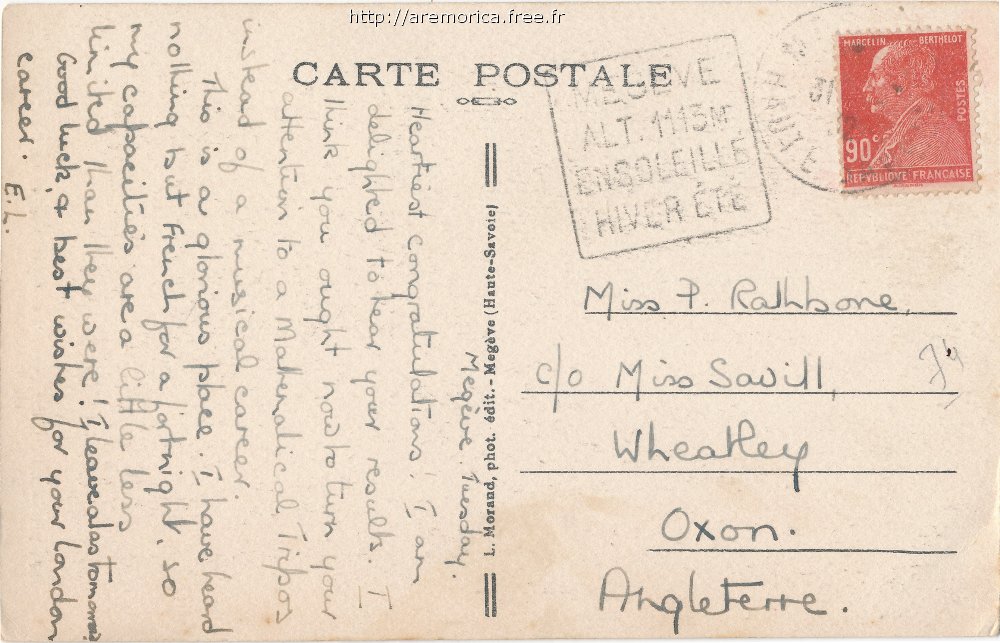 http://aremorica.free.fr
CARTE POSTALE
MEGÈVE
ALT. 1115M.
ENSOLEILLÉ
HIVER ÉTÉ
HAUTE
31
MARCELIN BERTHELOT
POSTES
90c
REPVBLIQUE FRANÇAISE
Megève. Tuesday.
Heartiest congratulations! I am
delighted to hear your results. I
think you ought now to turn your
attention to a Mathematical Tripos
instead of a musical career.
This is a glorious place. I have heard
nothing but French for a fortnight, so
my capacities are a little less
limited than they were! I leave alas tomorrow
Good luck, & best wishes for your London
career. E.L.
L. Morand, phot. édit. - Megève (Haute-Savoie)
Miss P. Rathbone,
c/o Miss Savill,
Wheatley
Oxon.
Angleterre.